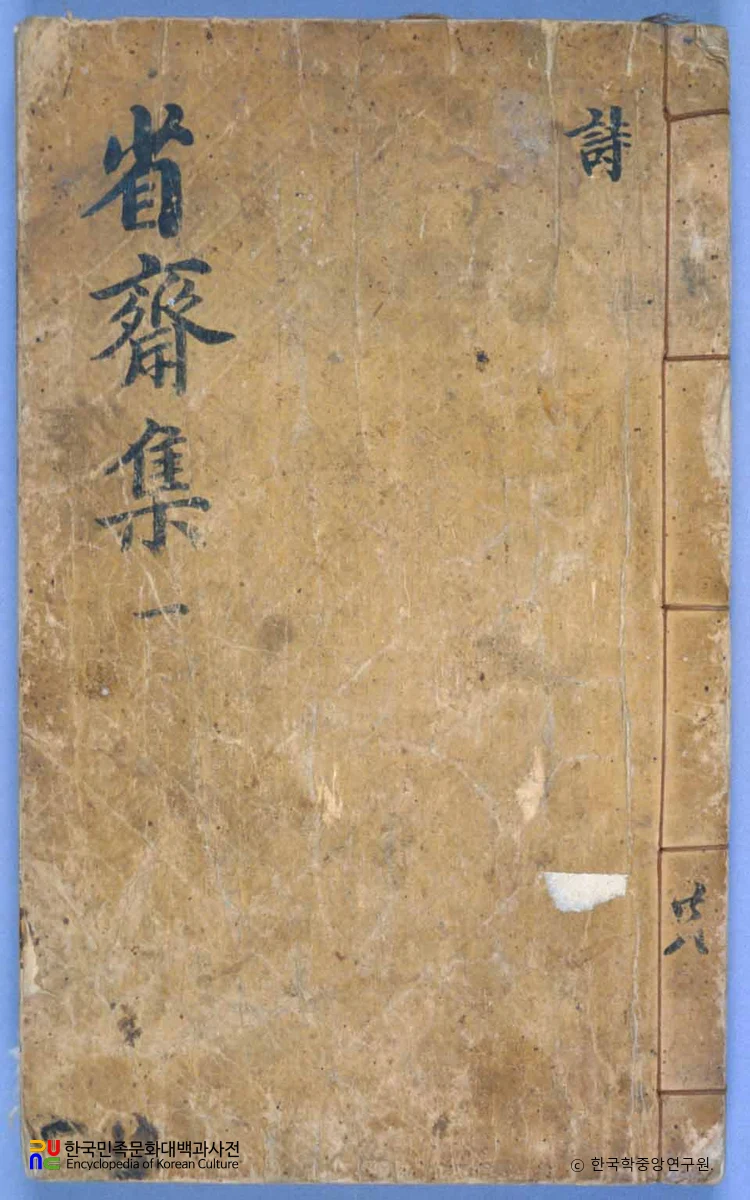 詩
省齋集 一
共八
한국민족문화대백과사전
Encyclopedia of Korean Culture
© 한국학중앙연구원